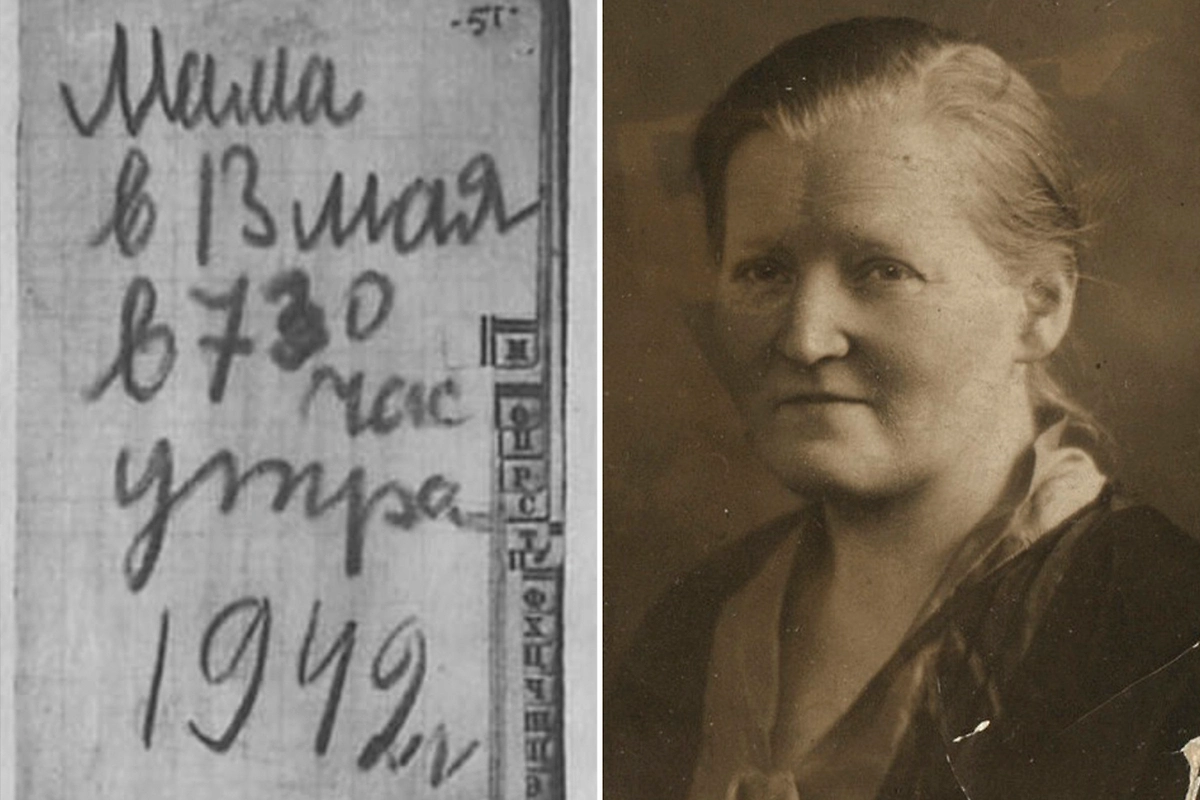 -51-
Мама
в 13 мая
в 730
час
утра
1942 г
М
О
П
Р
С
Т
У
Ф
Х
Ц
Ч
Ш
Щ